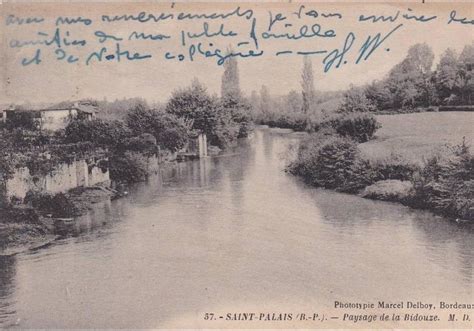 avec mes remerciements je vous envoie les
amitiés de ma petite famille
et de votre collègue — H W
Phototypie Marcel Delboy, Bordeaux
57. - SAINT-PALAIS (B.-P.) — Paysage de la Bidouze. M. D.